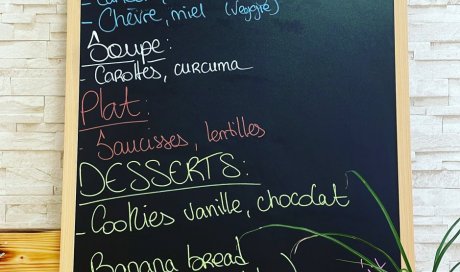 - Chèvre, miel (veggie)
Soupe:
- Carottes, curcuma
Plat:
- Saucisses, lentilles
DESSERTS:
- Cookies vanille, chocolat
Banana bread